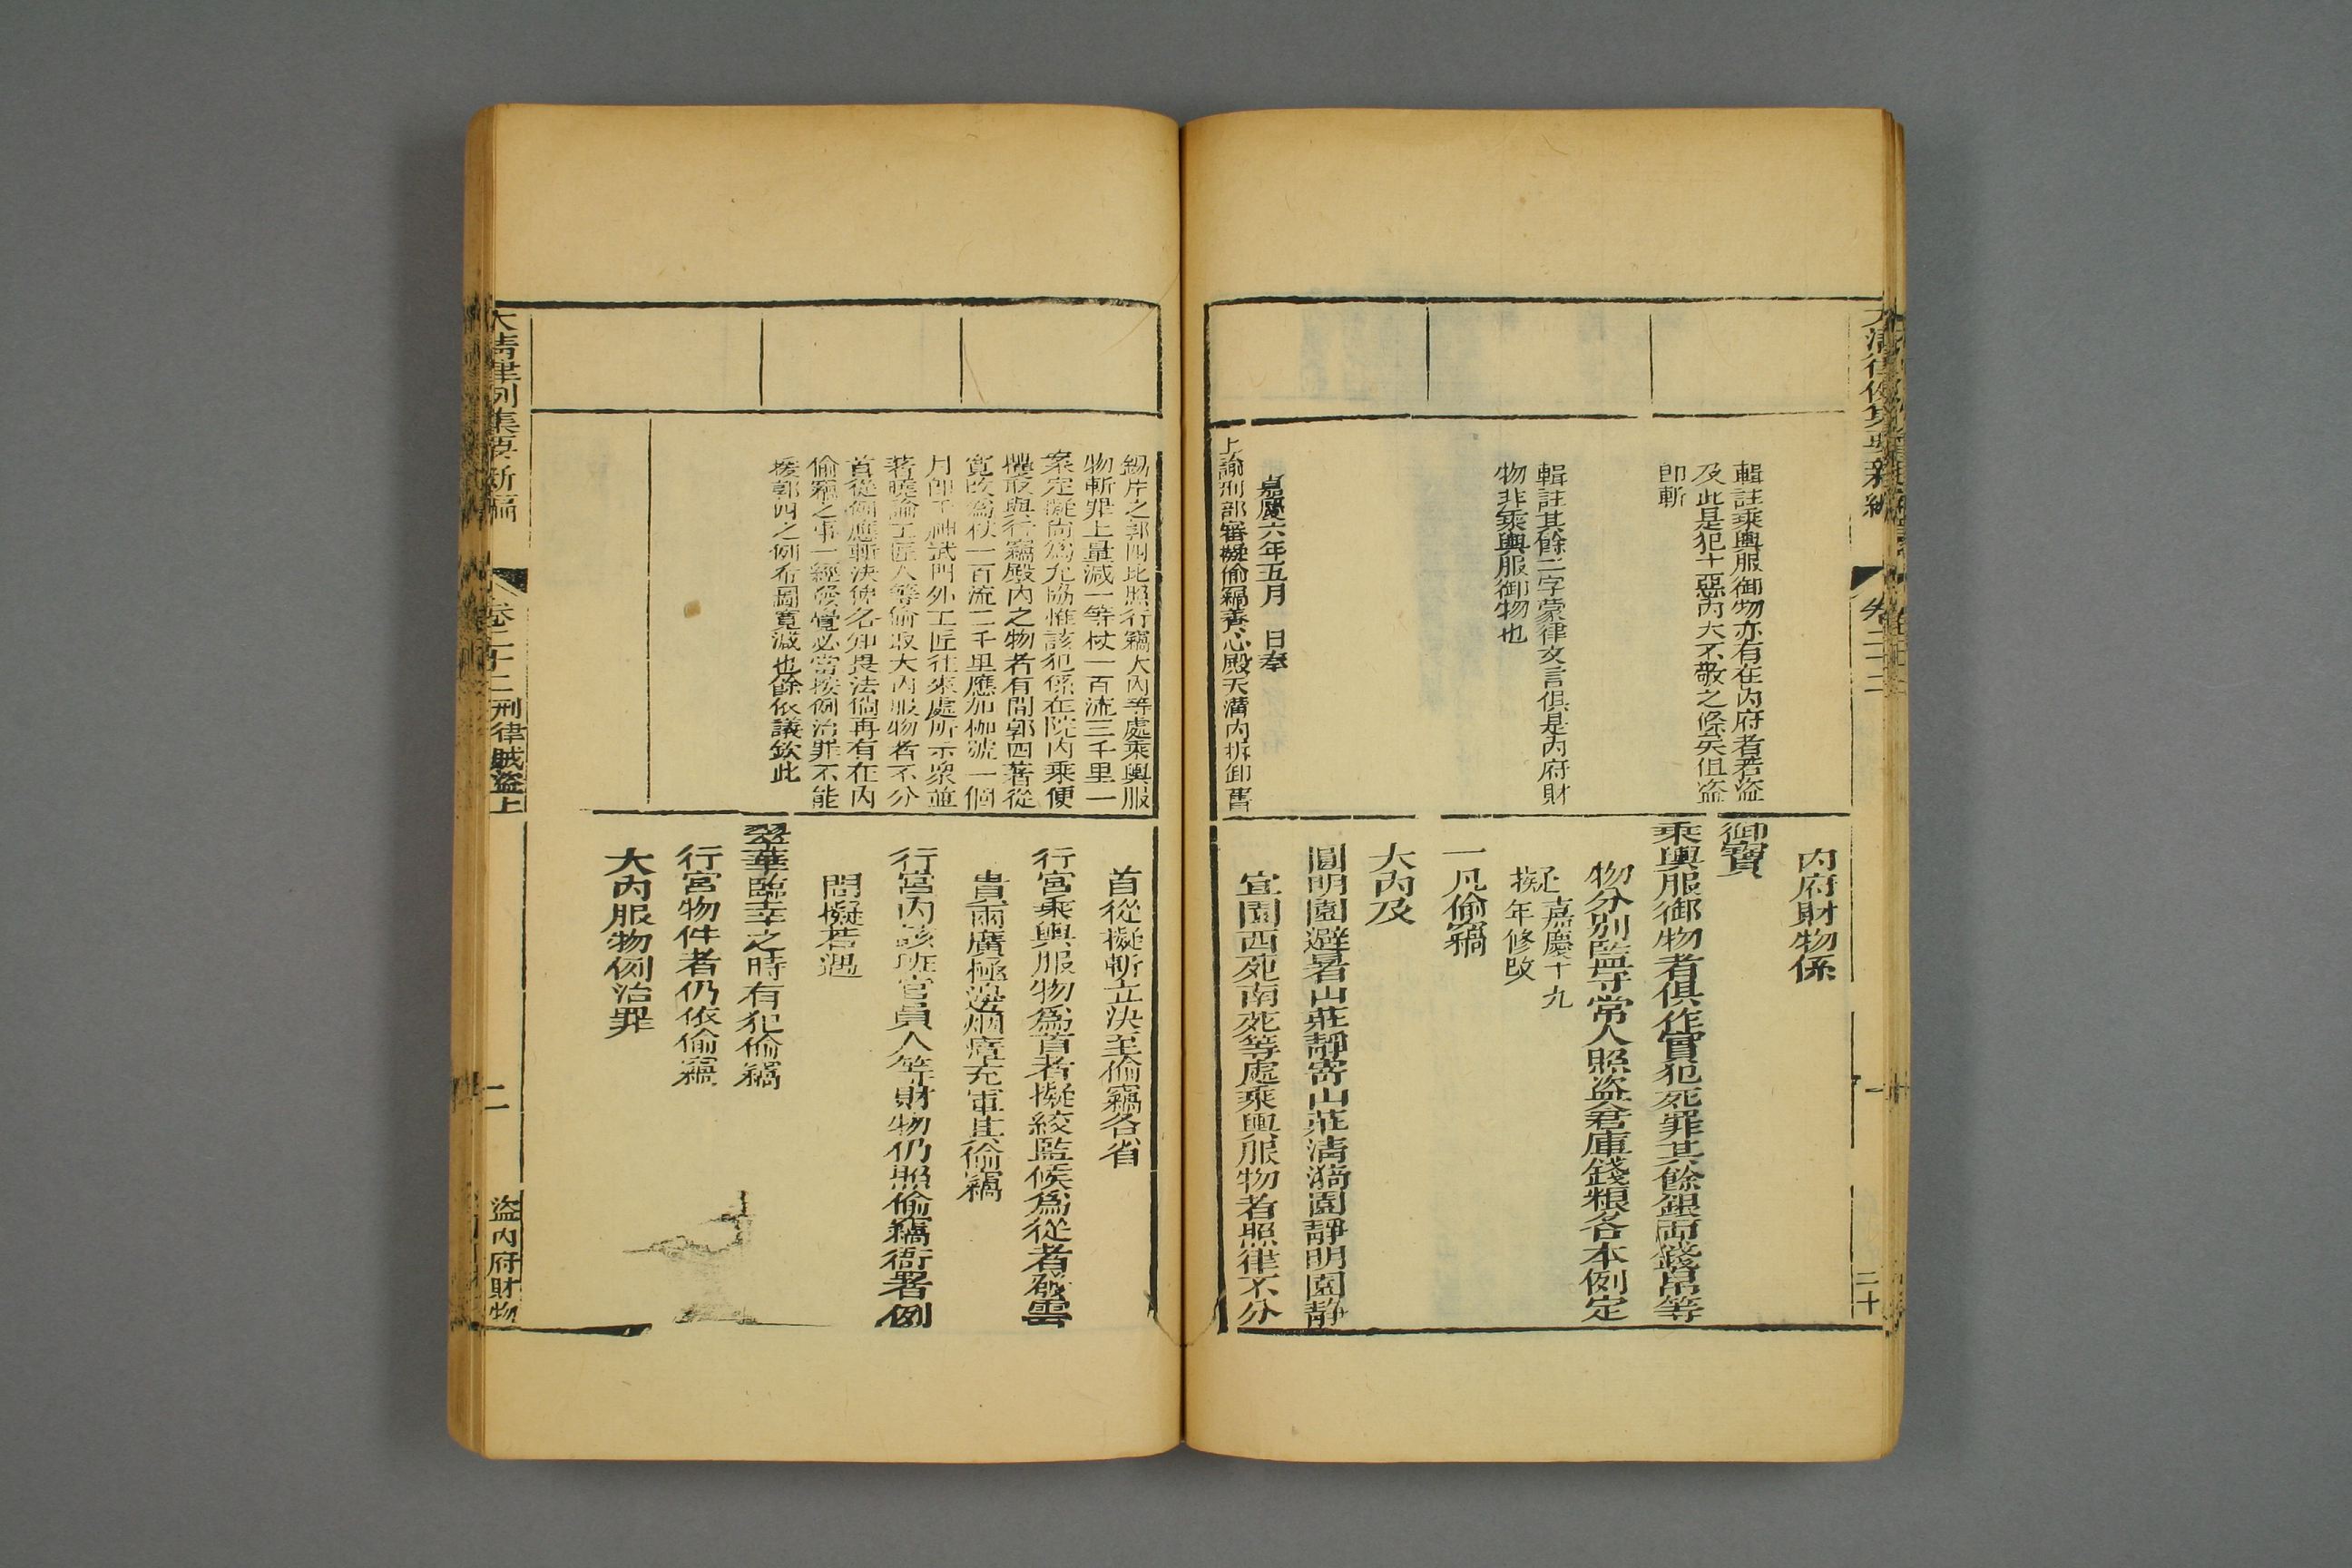 大清律例集要新編
卷二十二
輯註乘輿服御物亦有在內府者若盜
及此是犯十惡內大不敬之條矣但盜
即斬
輯註其餘二字蒙律文言俱是內府財
物非乘輿服御物也
嘉慶六年五月　日奉
上諭刑部審擬偷竊養心殿天溝內拆卸舊
內府財物係
御寶
乘輿服御物者俱作實犯死罪其餘銀兩錢帛等
物分別監守常人照盜倉庫錢糧各本例定
擬嘉慶十九
年修改
一凡偷竊
大內及
圓明園避暑山莊靜寄山莊清漪園靜明園靜
宜園西苑南苑等處乘輿服物者照律不分
錫片之郭四比照行竊大內等處乘輿服
物斬罪上量減一等杖一百流三千里一
案定擬尚為允協惟該犯係在院內乘便
攫取與行竊殿內之物者有間郭四著從
寬改為杖一百流二千里應加枷號一個
月即于神武門外工匠往來處所示眾並
著曉諭工匠人等偷取大內服物者不分
首從例應斬決俾各知畏法倘再有在內
偷竊之事一經發覺必當按例治罪不能
援郭四之例希圖寬減也餘依議欽此
首從擬斬立決至偷竊各省
行宮乘輿服物為首者擬絞監候為從者發雲
貴兩廣極邊烟瘴充軍其偷竊
行宮內該班官員人等財物仍照偷竊衙署例
問擬若遇
翠華臨幸之時有犯偷竊
行宮物件者仍依偷竊
大內服物例治罪
大清律例集要新編
卷二十二刑律賊盜上
二
盜內府財物